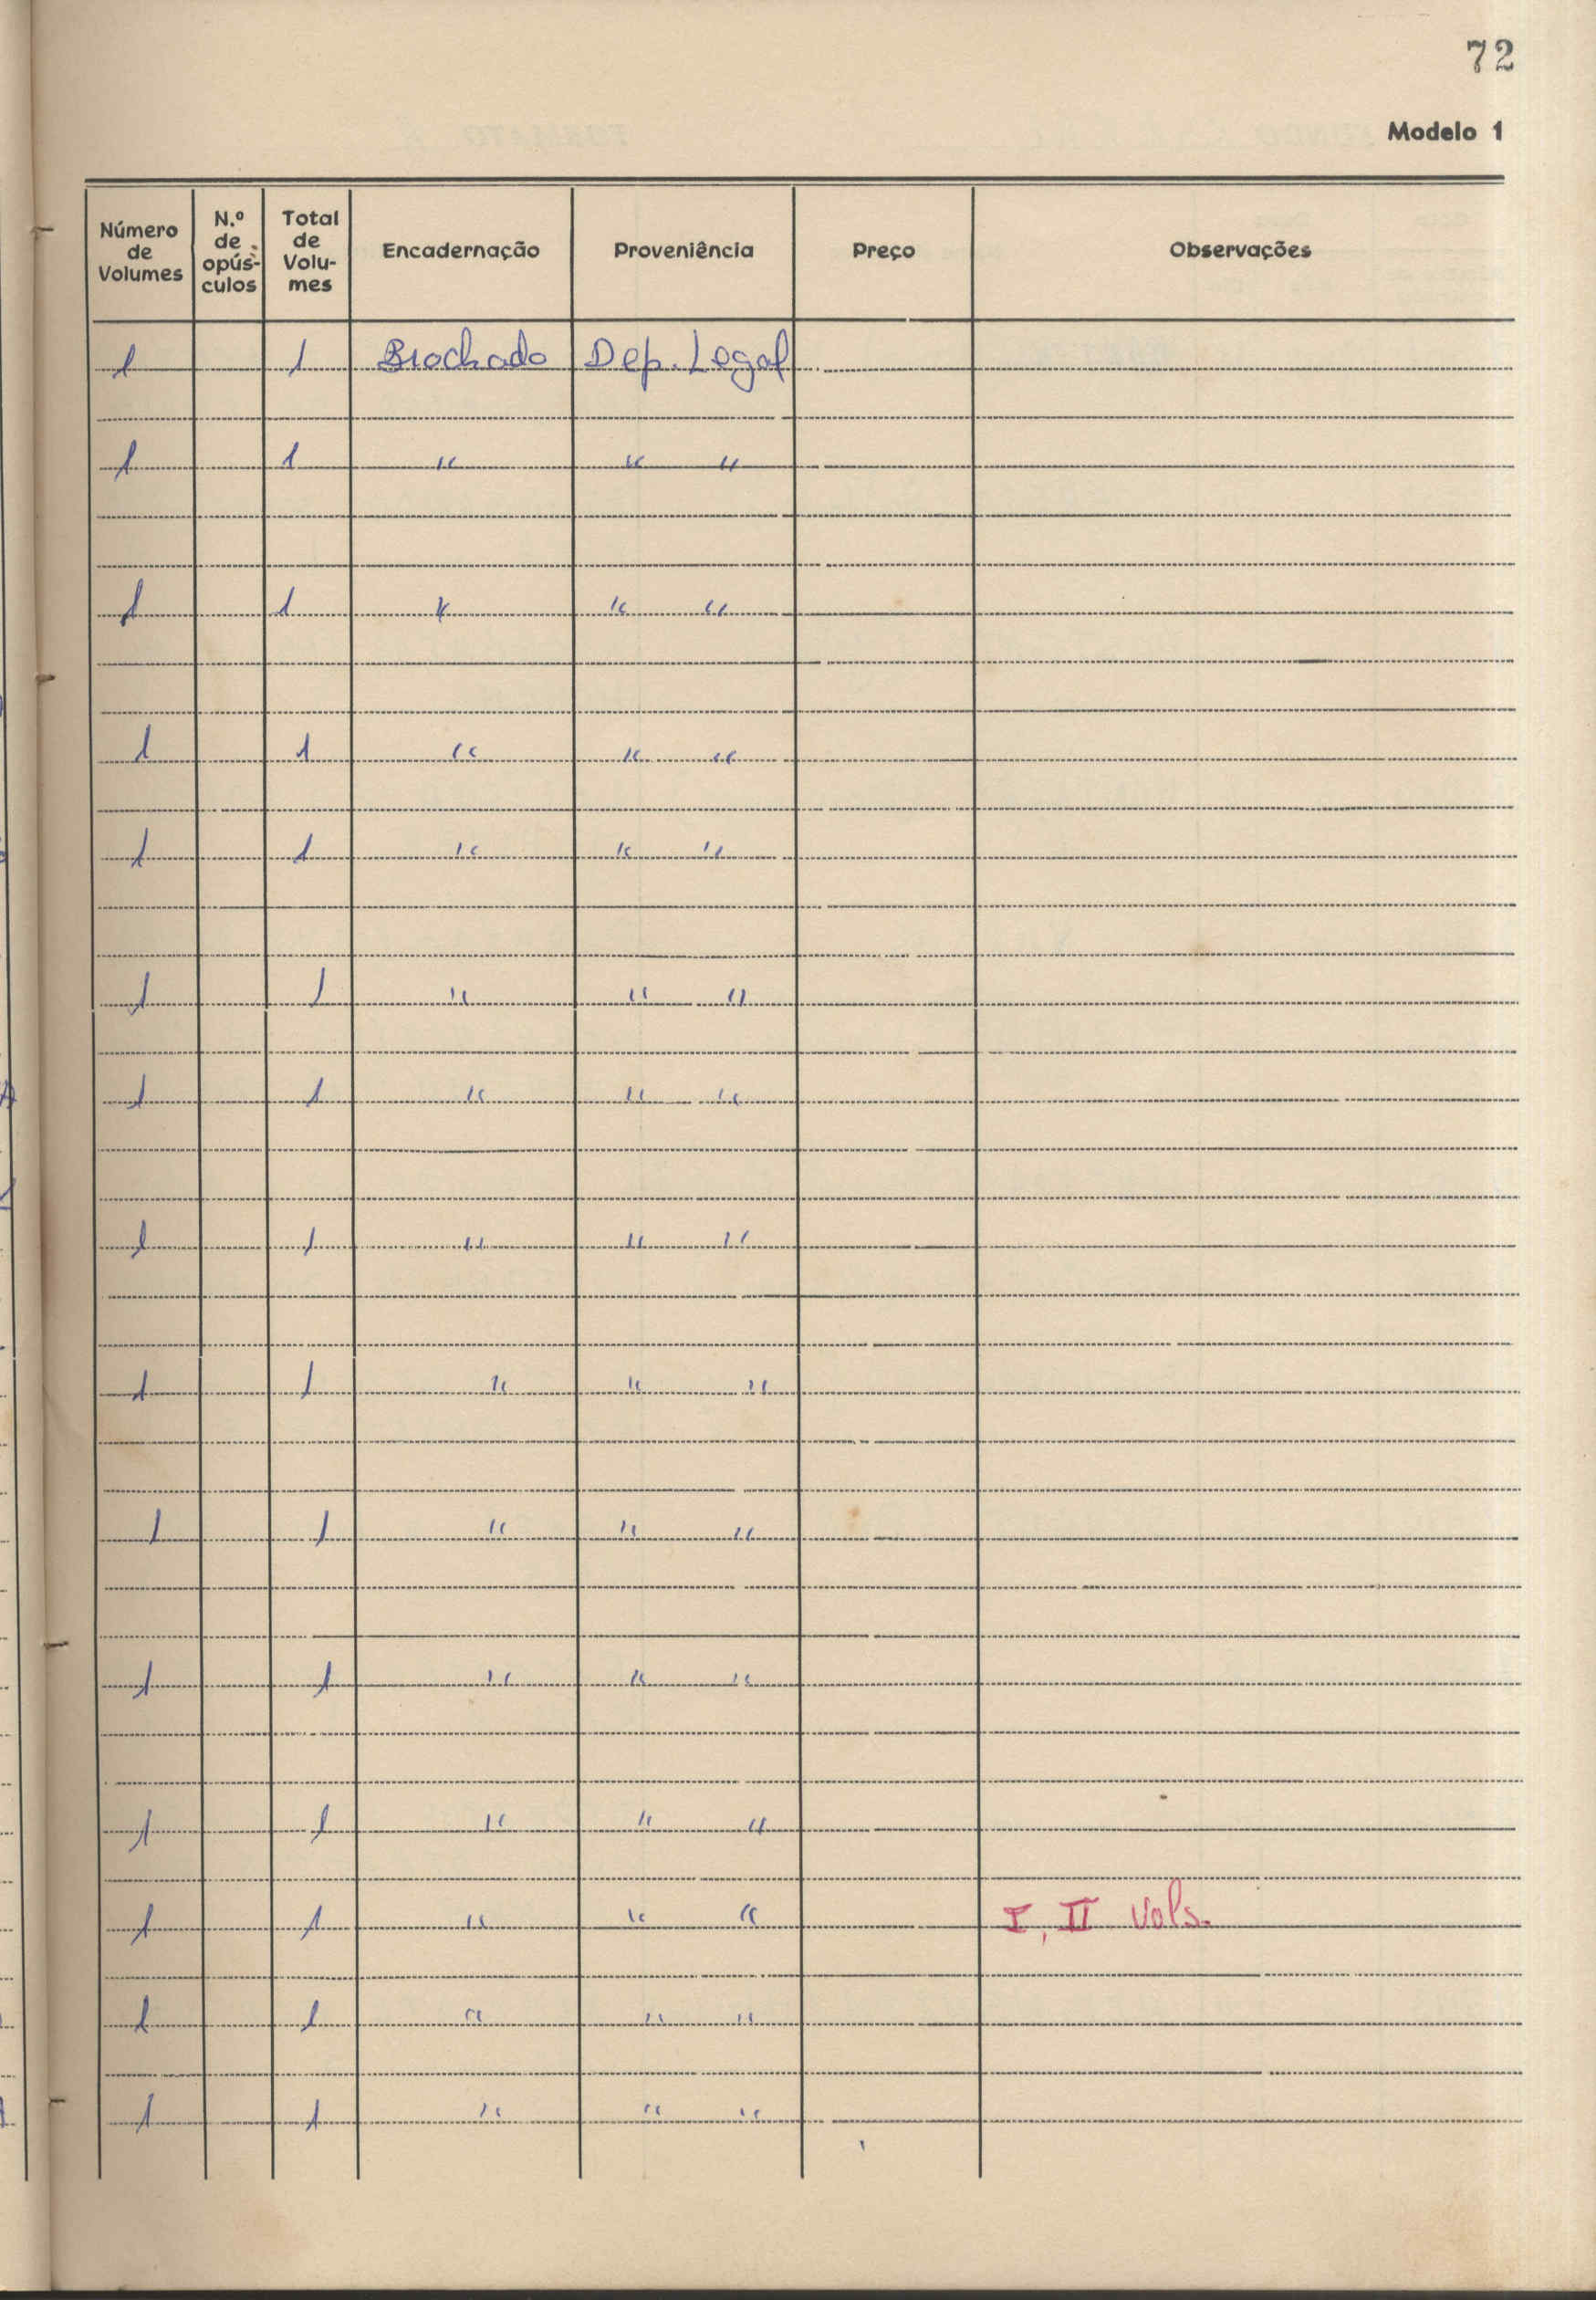 72
Modelo 1
Número de Volumes | N.º de opús-culos | Total de Volu-mes | Encadernação | Proveniência | Preço | Observações
1 1 Brochado Dep. Legal
1 1 " " "
1 1 " " "
1 1 " " "
1 1 " " "
1 1 " " "
1 1 " " "
1 1 " " "
1 1 " " "
1 1 " " "
1 1 " " "
1 1 " " "
1 1 " " " I, II Vols.
1 1 " " "
1 1 " " "